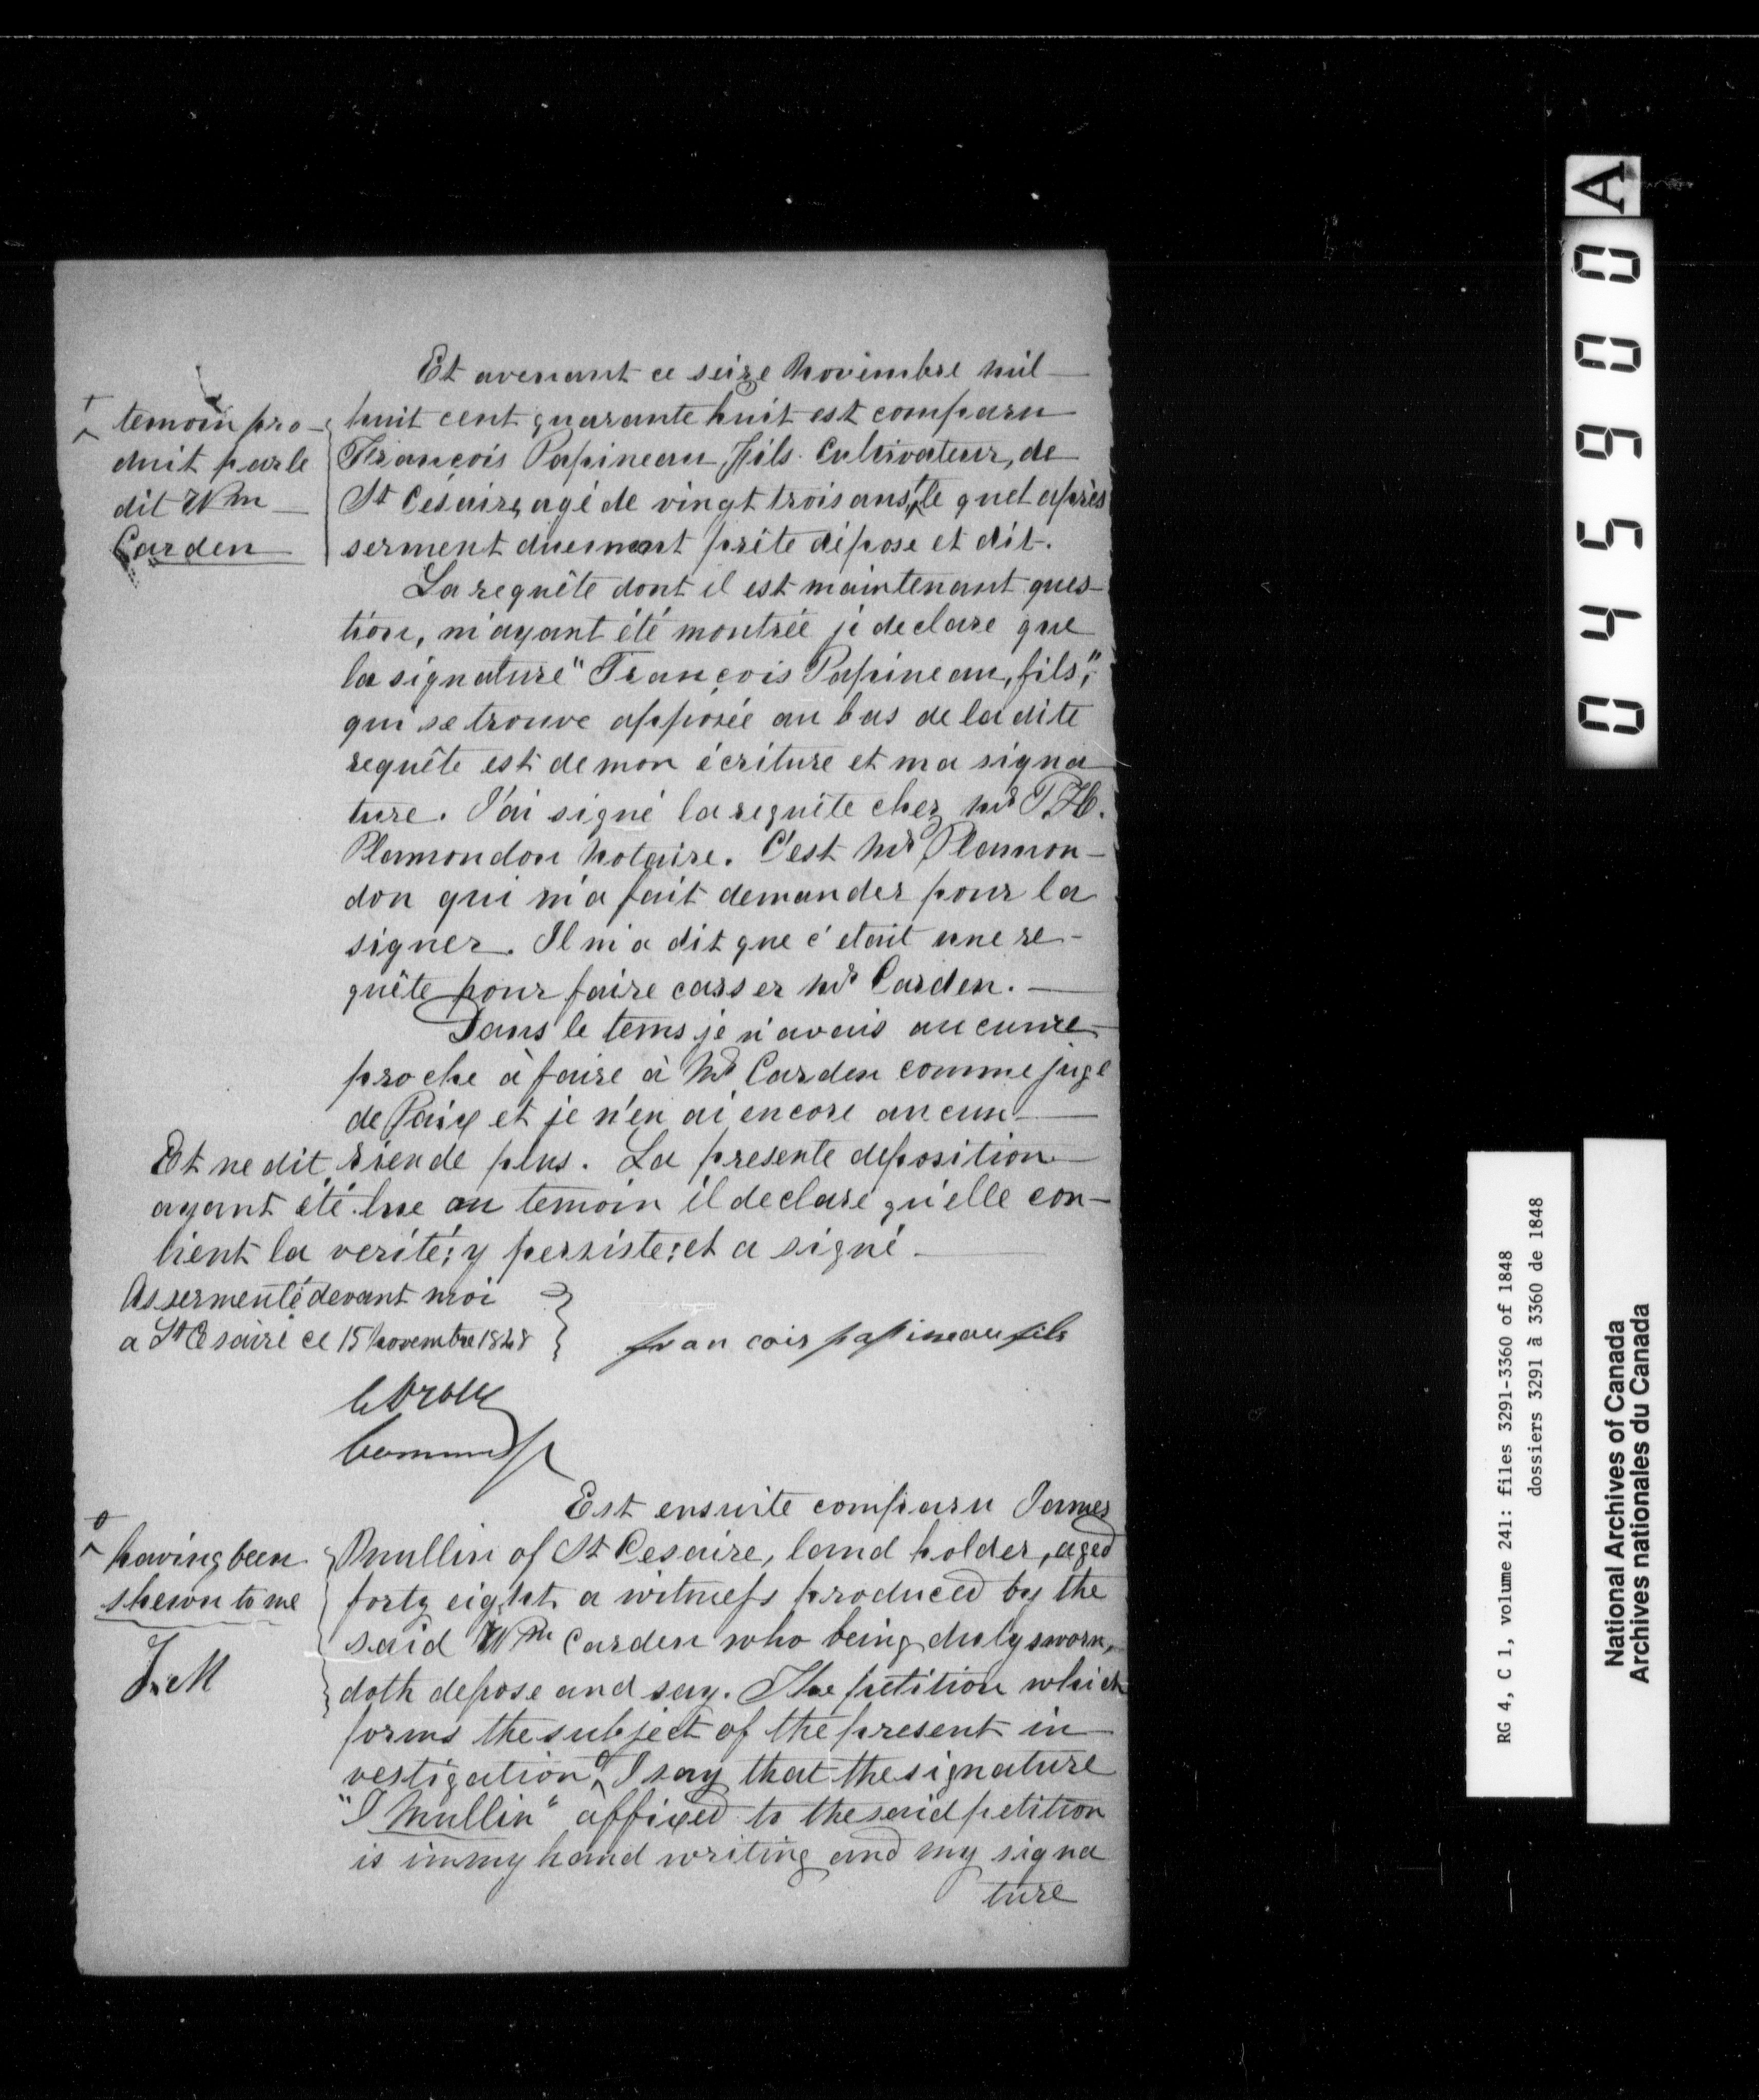 Et avenant ce seize Novembre mil
huit cent quarante huit est comparu
François Papineau, fils. Cultivateur, de
St Césaire, agé de vingt trois ans, le quel après
serment duement prête dépose et dit.
temoin pro-
duit par le
dit Wm
Carden
La requête dont il est maintenant ques-
tion, m'ayant été montrée je declare que
la signature "François Papineau, fils",
qui se trouve apposée au bas de la dite
requête est de mon écriture et ma signa
ture. J'ai signé la requête chez Mr T. H.
Plamondon Notaire. C'est Mr Plamon-
don qui m'a fait demander pour la
signer. Il m'a dit que c'etait une re-
quête pour faire casser Mr Carden.
Dans le tems je n'avais aucun re-
proche à faire à Mr Carden comme juge
de Paix et je n'en ai encore aucun
Et ne dit rien de plus. La presente deposition
ayant été lue au temoin il declare qu'elle con-
tient la verité; y persiste: et a signé
Assermenté devant moi
a St Césaire ce 15 Novembre 1848
francois papineau fils
Est ensuite comparu James
Mullin of St Cesaire, land holder, aged
forty eight a witness produced by the
said Wm Carden who being duly sworn,
doth depose and say. The petition which
forms the subject of the present in
vestigation, I say that the signature
"J Mullin" affixed to the said petition
is in my hand writing and my signa
ture
having been
shewn to me
J. M
A
045900
RG 4, C 1, volume 241: files 3291-3360 of 1848
dossiers 3291 à 3360 de 1848
National Archives of Canada
Archives nationales du Canada